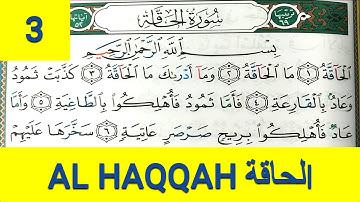 3
ترتيبها ٦٩ سُورَةُ الحَاقَّة آياتها ٥٢
بِسْمِ ٱللَّهِ ٱلرَّحْمَٰنِ ٱلرَّحِيمِ
ٱلْحَآقَّةُ ١ مَا ٱلْحَآقَّةُ ٢ وَمَآ أَدْرَىٰكَ مَا ٱلْحَآقَّةُ ٣ كَذَّبَتْ ثَمُودُ
وَعَادٌۢ بِٱلْقَارِعَةِ ٤ فَأَمَّا ثَمُودُ فَأُهْلِكُوا۟ بِٱلطَّاغِيَةِ ٥ وَأَمَّا
عَادٌ فَأُهْلِكُوا۟ بِرِيحٍ صَرْصَرٍ عَاتِيَةٍ ٦ سَخَّرَهَا عَلَيْهِمْ
AL HAQQAH الحاقة